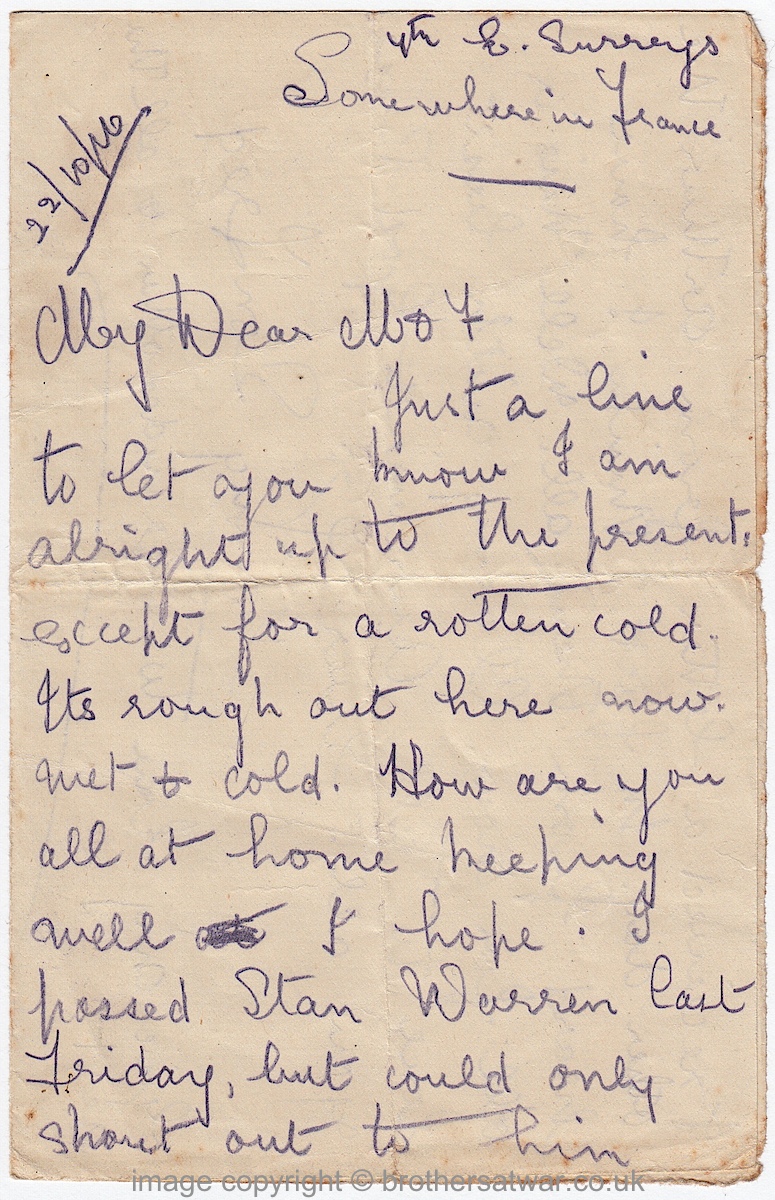 7th E. Surreys
Somewhere in France
22/10/16
My Dear M & F
Just a line
to let you know I am
alright up to the present.
except for a rotten cold.
Its rough out here now.
wet & cold. How are you
all at home keeping
well I hope. I
passed Stan Warren last
Friday, but could only
shout out to him
image copyright © brothersatwar.co.uk